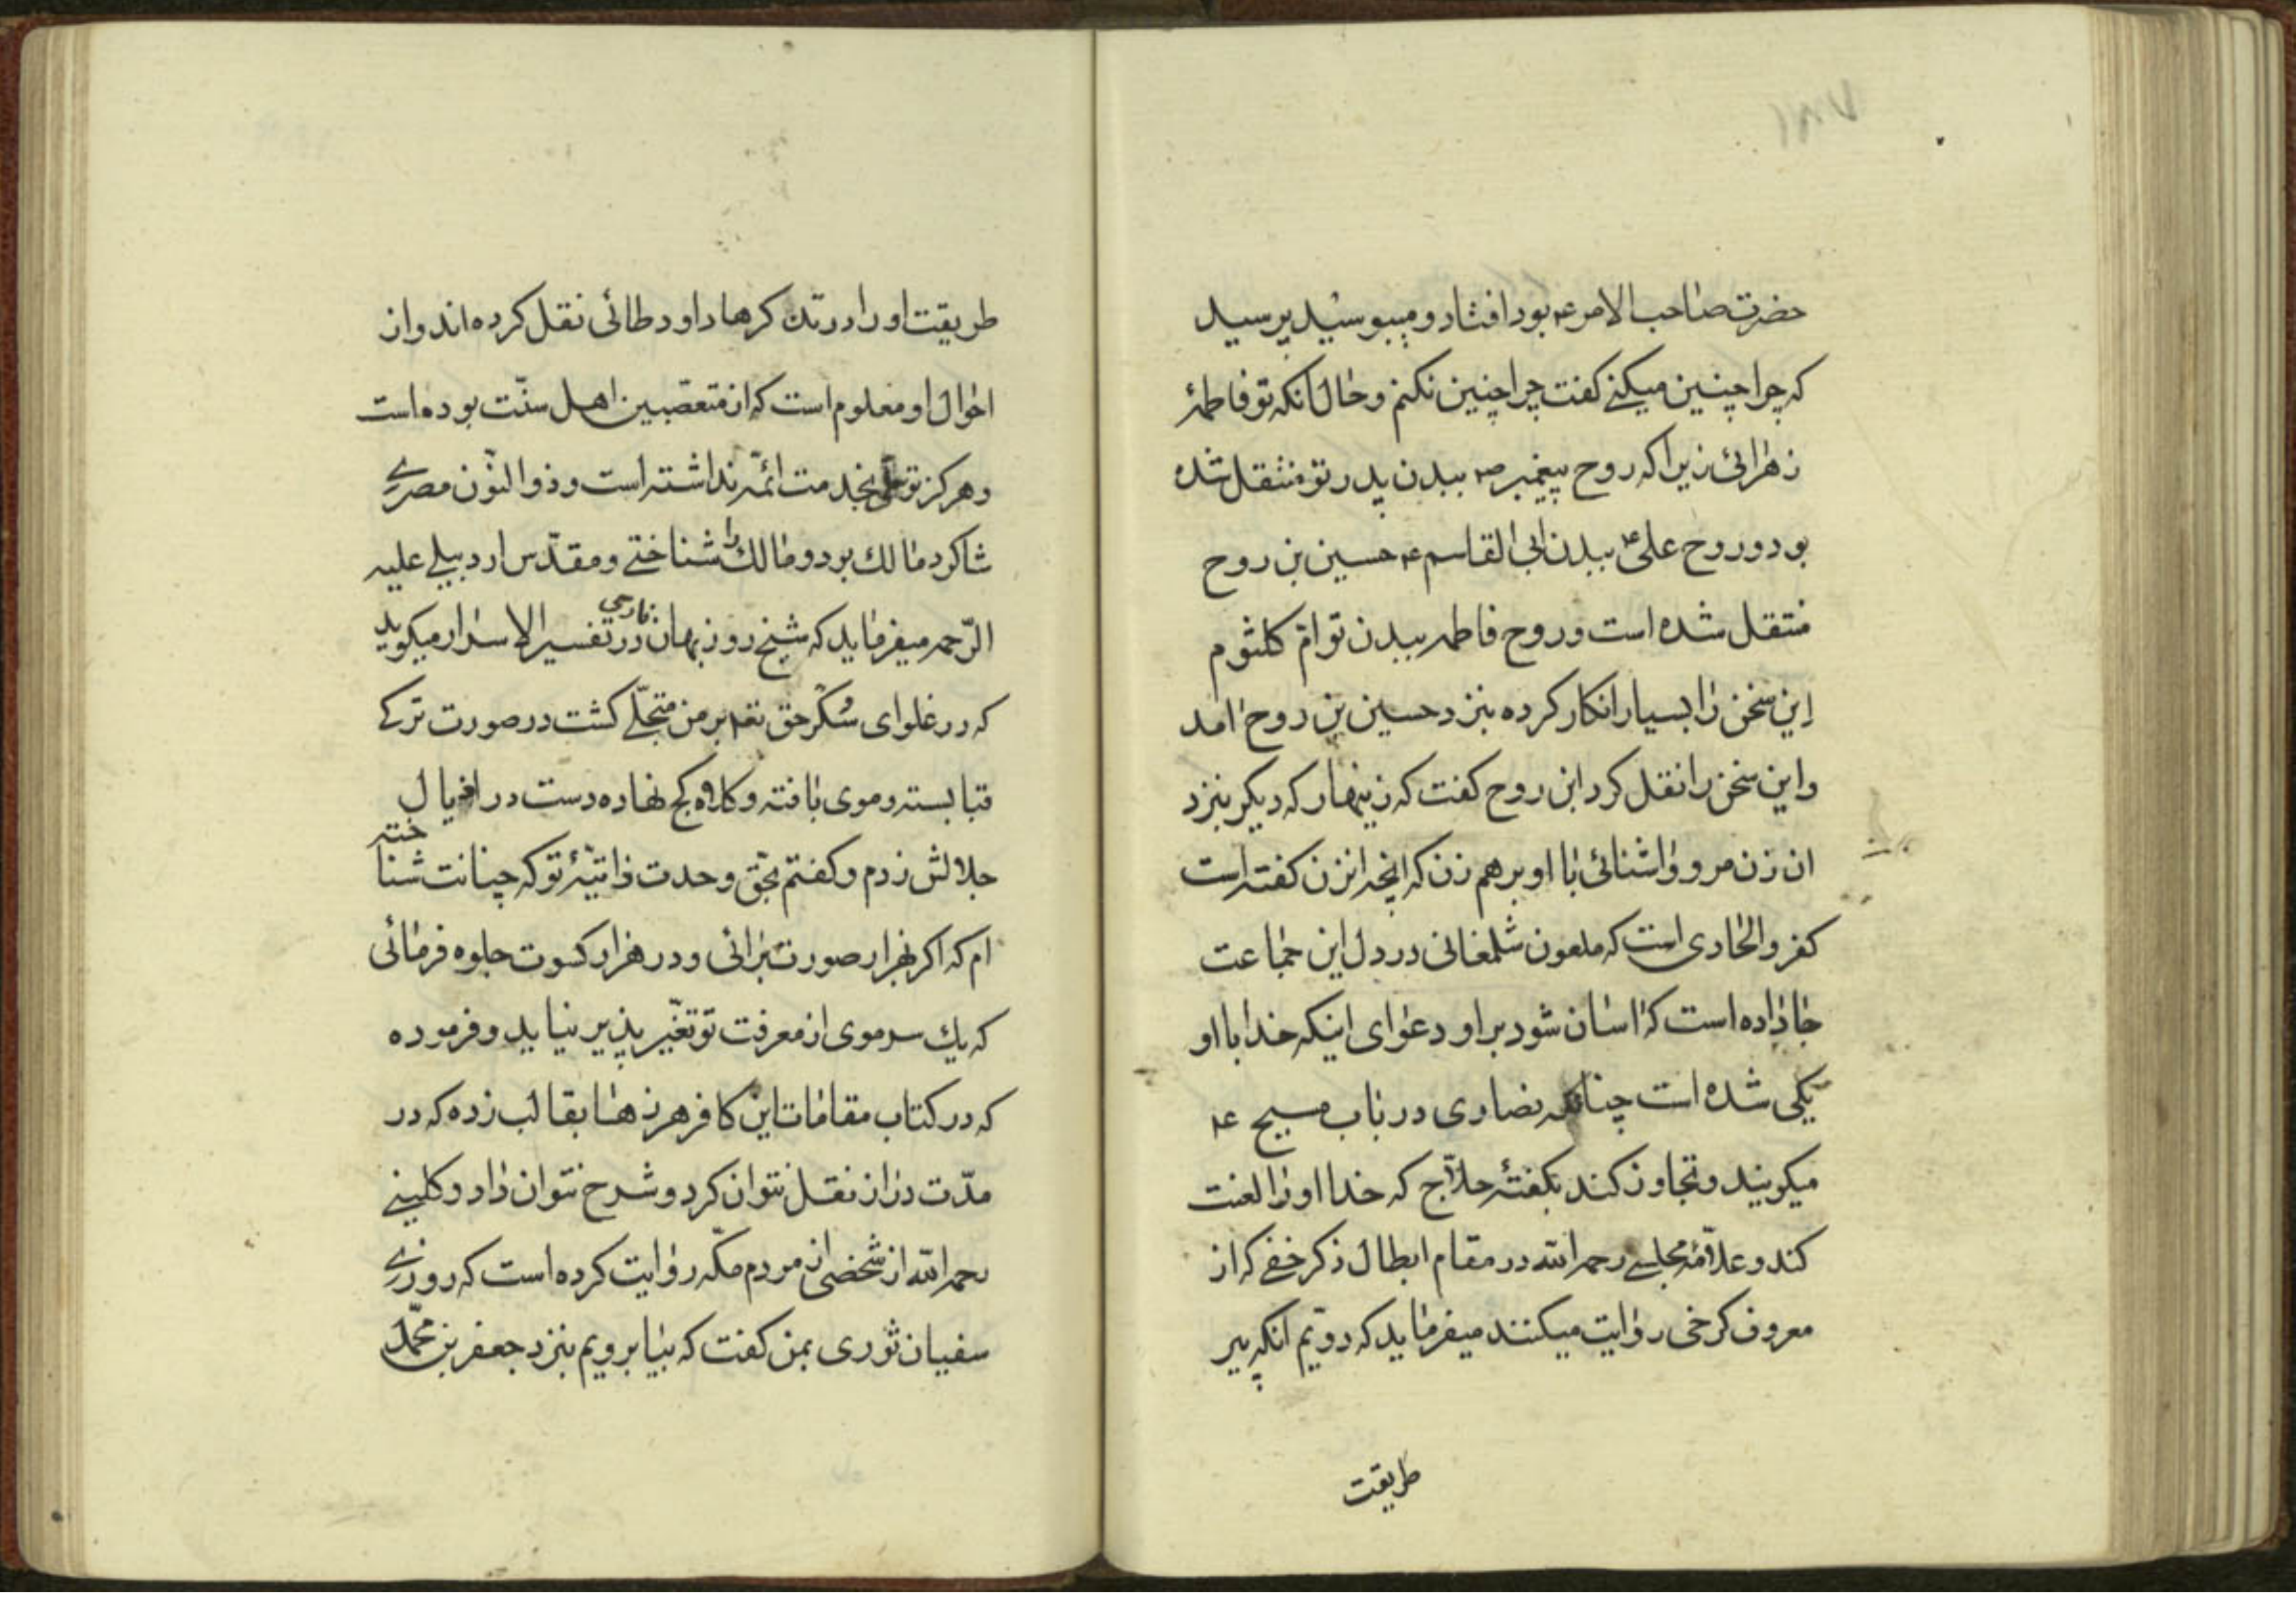 حضرت صاحب الامر ع بود افتاد و میبوسید پرسید
که چرا چنین میکنے کفت چرا چنین نکنم و حال آنکه تو فاطمهٔ
زهرائی زیرا که روح پیغمبر ص ببدن پدر تو منتقل شده
بود و روح علی ع ببدن ابی القاسم ع حسین بن روح
منتقل شده است و روح فاطمه ببدن تو ام کلثوم
این سخن را بسیار انکار کرده بنزد حسین بن روح امد
و این سخن را نقل کرد ابن روح کفت که زینهار که دیکر بنزد
ان زن مرو و اشنائی با او برهم زن که انچه انزن کفته است
کفر و الحادی است که ملعون شلمغانی در دل این جماعت
جا داده است که اسان شود بر او دعوای اینکه خدا با او
یکی شده است چنانکه نصاری در باب مسیح ع
میکویند و تجاوز کند بکفتهٔ حلّاج که خدا او را لعنت
کند و علّامهٔ مجلسے رحمه الله در مقام ابطال ذکر خفے که از
معروف کرخی روایت میکنند میفرماید که دویّم انکه پیر
طریقت
طریقت او را در تذکرها داود طائی نقل کرده اند و از
احوال او معلوم است که از متعصّبین اهل سنّت بوده است
و هرکز توسّلی بخدمت ائمّه نداشته است و ذو النّون مصرے
شاکرد مالك بود و مالك را شناختے و مقدّس اردبیلے علیه
الرّحمه میفرماید که شیخ روزبهان فارسی در تفسیر الاسرار میکوید
که در غلوای سُکر حق تع بر من متجلّے کشت در صورت ترکے
قبا بسته و موی بافته و کلاه کج نهاده دست در اذیال
جلالش زدم و کفتم بحقّ وحدت ذاتیّهٔ تو که چنانت شناخته
ام که اکر بهزار صورت برائی و در هزار کسوت جلوه فرمائی
که یك سر موی از معرفت تو تغیّر پذیر نیاید و فرموده
که در کتاب مقامات این کافر هرزها بقالب زده که در
مدّت دراز نقل نتوان کرد و شرح نتوان داد و کلینے
رحمه الله از شخصی از مردم مکّه روایت کرده است که روزے
سفیان ثوری بمن کفت که بیا برویم بنزد جعفر بن محمّد